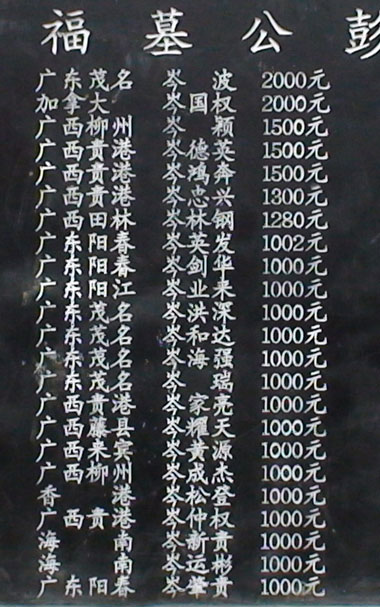 福墓公彭
广东茂名 岑 波 2000元
加拿大 岑国权 2000元
广西柳州 岑 颖 1500元
广西贵港 岑德英 1500元
广西贵港 岑鸿奔 1500元
广西贵港 岑忠兴 1300元
广西田林 岑林钢 1280元
广东阳春 岑英发 1002元
广东阳春 岑剑华 1000元
广东阳江 岑业来 1000元
广东茂名 岑洪深 1000元
广东茂名 岑和达 1000元
广东茂名 岑海强 1000元
广东茂名 岑 瑞 1000元
广西贵港 岑家亮 1000元
广西藤县 岑耀天 1000元
广西来宾 岑黄源 1000元
广西柳州 岑成杰 1000元
香港 岑松登 1000元
广西贵港 岑仲权 1000元
海南 岑新贵 1000元
海南 岑运彬 1000元
广东阳春 岑肇贵 1000元